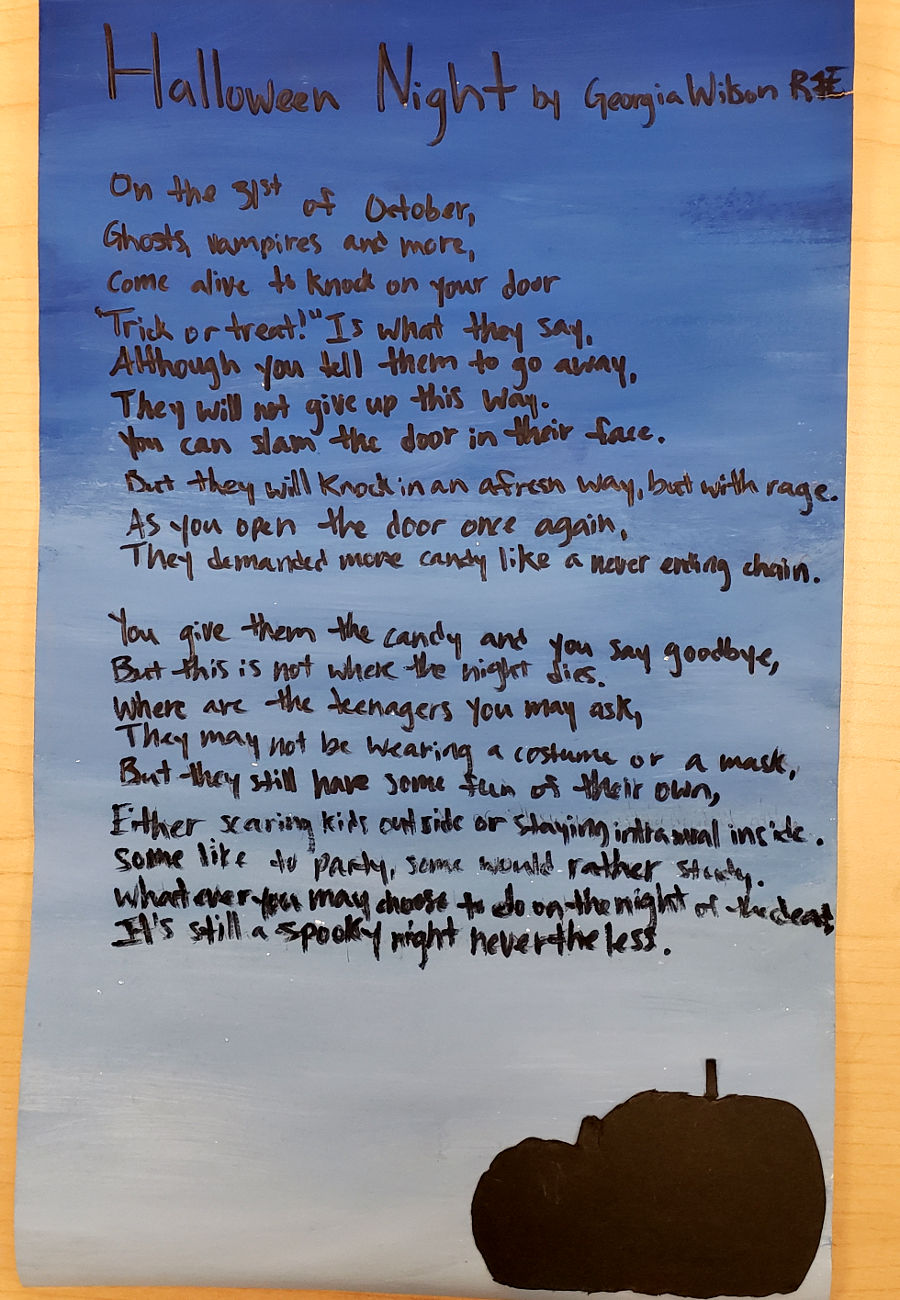 Halloween Night by Georgia Wilson
On the 31st of October,
Ghosts, vampires and more,
Come alive to knock on your door
"Trick or treat!" Is what they say,
Although you tell them to go away,
They will not give up this way.
You can slam the door in their face.
But they will knock in an afresh way, but with rage.
As you open the door once again,
They demanded more candy like a never ending chain.
You give them the candy and you say goodbye,
But this is not where the night dies.
Where are the teenagers you may ask,
They may not be wearing a costume or a mask,
But they still have some fun of their own,
Either scaring kids outside or staying inside.
Some like to party, some would rather study.
Whatever you may choose to do on the night of the dead,
It's still a spooky night nevertheless.